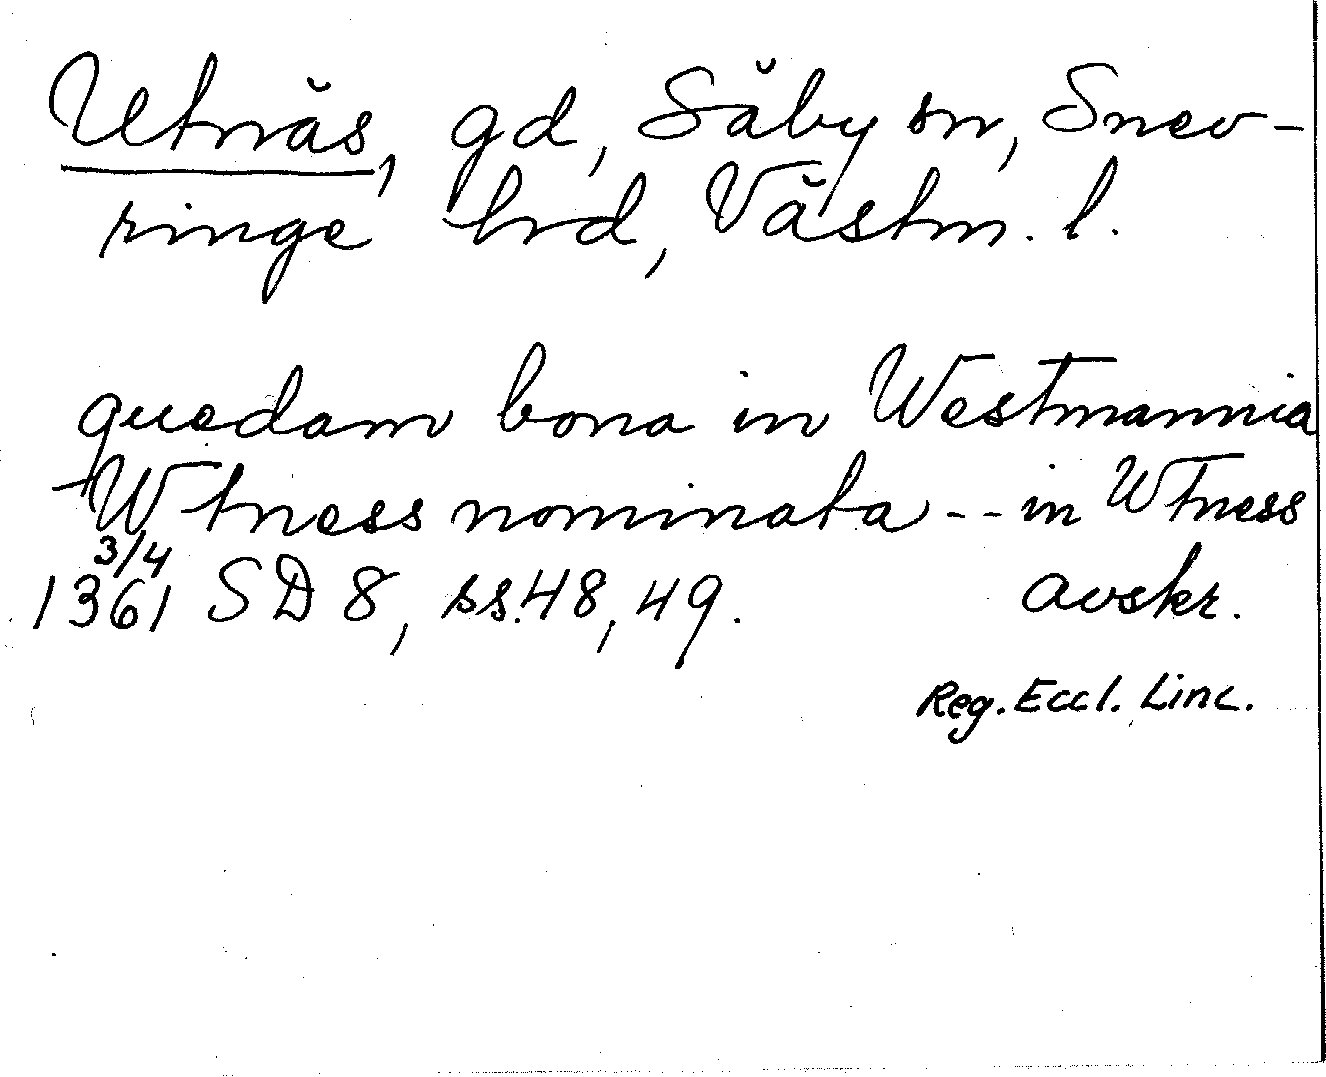 Utnäs, gd, Säby sn, Snev-
ringe hrd, Västm. l.
quedam bona in Westmannia
Wtness nominata -- in Wtness
3/4
1361 SD 8, ss. 48, 49. avskr.
Reg. Eccl. Linc.